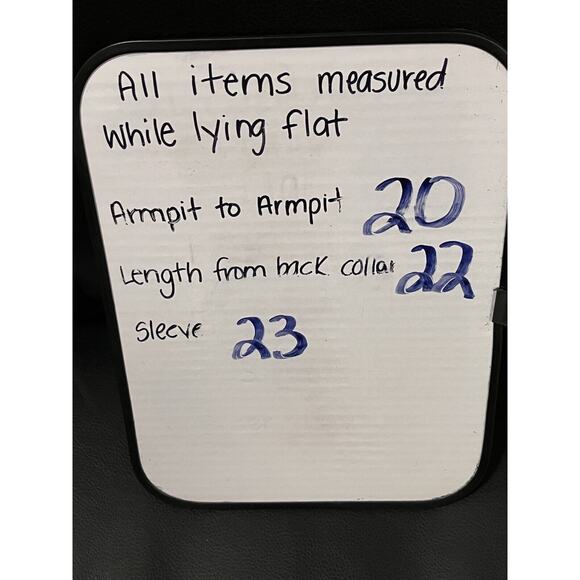 All items measured
while lying flat
Armpit to Armpit 20
Length from back collar 22
Sleeve 23